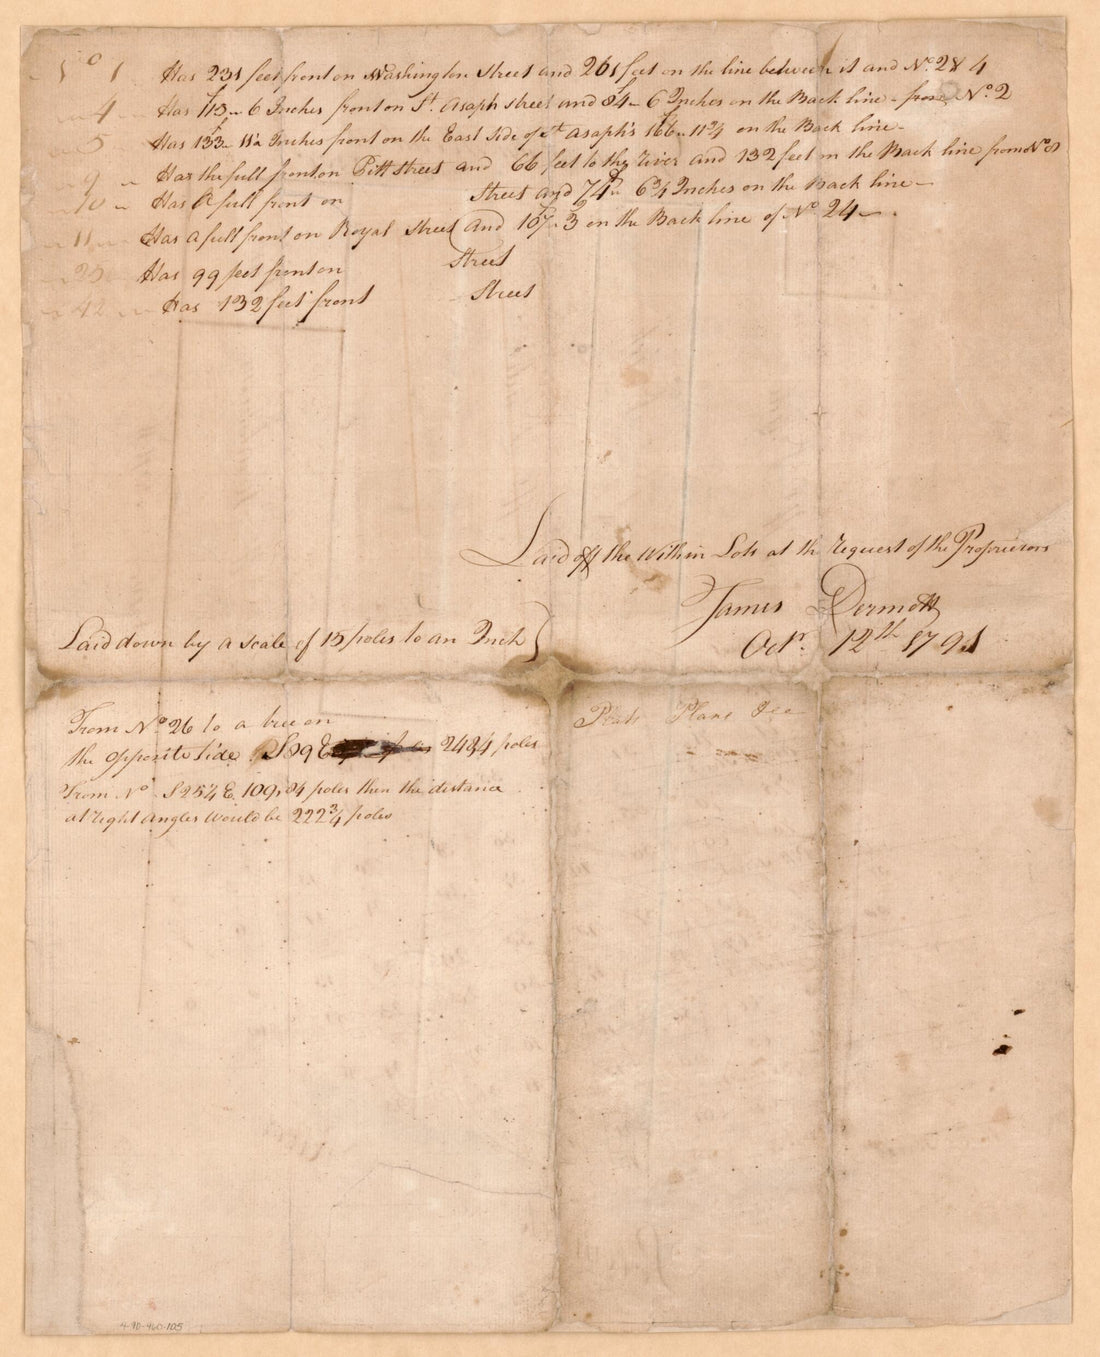 No 1 Has 231 feet front on Washington Street and 261 feet on the line between it and No. 2 & 4
4 Has 113 - 6 Inches front on St. Asaph street and 84 - 6 Inches on the Back line - from No. 2
5 Has 133 - 11½ Inches front on the East Side of St Asaph's 166 - 11¾ on the Back line -
9 Has the full front on Pitt street and 66 feet to the River and 132 feet on the Back line from No 8
10 Has A full front on Street and 74 6¾ Inches on the Back line -
11 Has A full front on Royal Street and 107 - 3 on the Back line of No. 24 -
25 Has 99 feet front on Street
42 Has 132 feet front Street
Laid off the Within Lots at the request of the Proprietors
James Dermott
Octr. 12th 1791
Laid down by a scale of 15 poles to an Inch
From No 26 to a tree on
the opposite side S89E 242,4 poles
From No S25¼E 109,84 poles then the distance
at right angles would be 222¾ poles
Plats Plans &ca
4-90-460-105